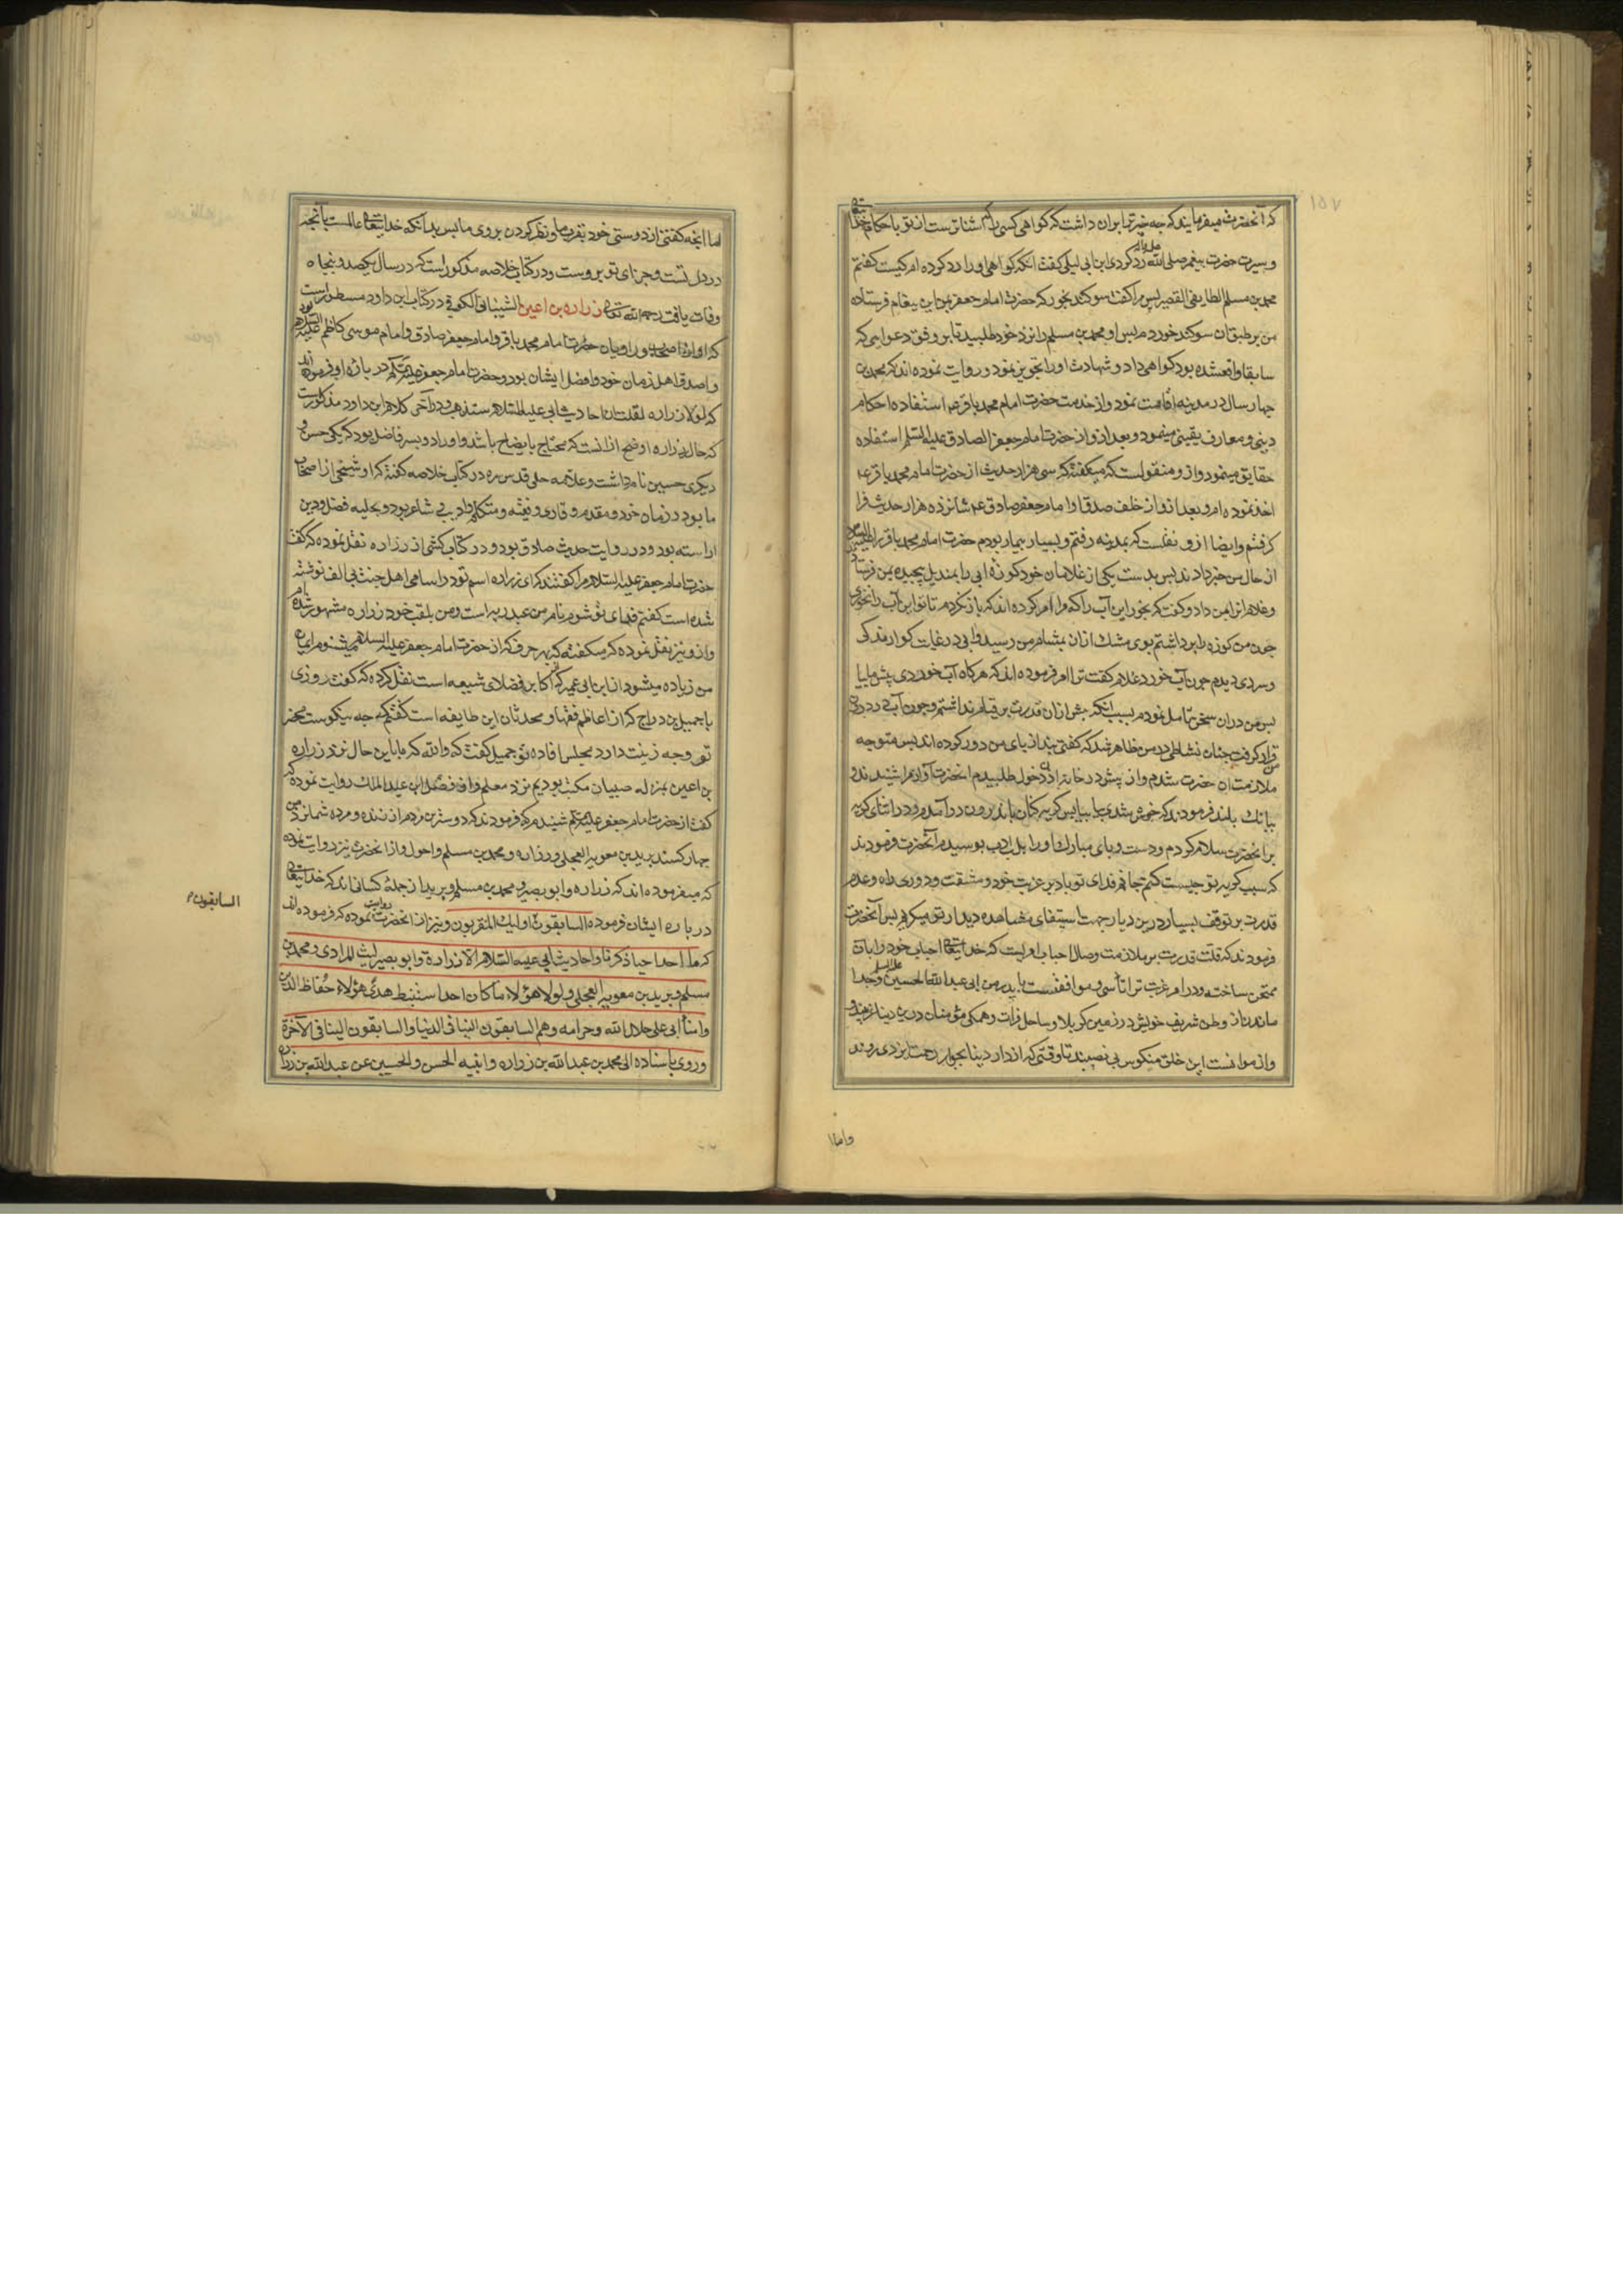 ۱۵۷
که آنحضرت میفرمایند که چه چیز ترا بران داشت که کواهی کسی را که اشناترست از تو باحکام خدا
و سیرت حضرت پیغمبر صلی الله علیه وآله رد کردی ابن ابی لیلی کفت انکه کواهی او را رد کرده ام کیست کفتم
محمد بن مسلم الطایفی القصیر پس مرا کفت سوکند بخور که حضرت امام جعفر بمن این پیغام فرستاده
من بر طبق ان سوکند خوردم پس او محمد بن مسلم را نزد خود طلبید تا بر وفق دعوایی که
سابقا واقع شده بود کواهی داد و شهادت او را تجویز نمود و روایت نموده اند که محمد بن
چهار سال در مدینه اقامت نمود و از خدمت حضرت امام محمد باقر ع استفاده احکام
دینی و معارف یقینی مینمود و بعد از و از حضرت امام جعفر الصادق علیه السلم استفاده
حقایق مینمود و ازو منقولست که میکفته که سی هزار حدیث از حضرت امام محمد باقر ع
اخذ نموده ام و بعد از و از خلف صدق او امام جعفر صادق ع شانزده هزار حدیث فرا
کرفتم و ایضا ازو نقلست که بمدینه رفتم و بسیار بیمار بودم حضرت امام محمد باقر را علیه السلام
از حال من خبر دادند پس بدست یکی از غلامان خود کوزه ابی را بمندیل پیچیده بمن فرستاد
و غلام انرا بمن داد و کفت که بخور این آب را که مرا امر کرده اند که باز نکردم تا تو این آب را نخوری
چون من کوزه را برداشتم بوی مشک ازان بمشام من رسید و ابی در غایت کوارندکی
و سردی دیدم چون آب خوردم غلام کفت ترا امر فرموده اند که هرکاه آب خوردی پیش ما بیا
پس من دران سخن تامل نمودم بسبب انکه پیش ازان قدرت بر قیام نداشتم و چون آب در درون
من قرار کرفت چنان نشاطی در من ظاهر شد که کفتی بند از پای من دور کرده اند پس متوجه
ملازمت ان حضرت شدم و از پیش در خانه اذن دخول طلبیدم انحضرت آواز مرا شنیدند و
ببانک بلند فرمودند که خوش شدی بیا بیا پس کریه کنان باندرون درآمدم و در اثنای کریه
بر انحضرت سلام کردم و دست و پای مبارک او را بلب ادب بوسیدم آنحضرت فرمودند
که سبب کریه تو چیست کفتم جانم فدای تو باد بر غربت خود و مشقت و دوری راه و عدم
قدرت بر توقف بسیار درین دیار جهت استیفای مشاهده دیدار تو میکریم پس آنحضرت
فرمودند که قلت قدرت بر ملازمت وصال احباب اولیت که خدایتعالی احباب خود را بان
ممتحن ساخته و در امر غربت ترا تأسی و موافقتست با پدر من ابی عبدالله الحسین علیه السلم و جدا
ماندن از وطن شریف خویش در زمین کربلا و ساحل فرات و همکی مؤمنان درین دنیا غریبند
و از موانست این خلق منکوس بی نصیبند تا وقتی که از دار دینا بجوار رحمت ایزدی روند
واما
اما انچه کفتی از دوستی خود بقرب ما و نظر کردن بروی ما پس بدانکه خدایتعالی عالمست بآنچه
در دل تست و جزای تو بروست و در کتاب خلاصه مذکور است که در سال یکصد و پنجاه
وفات یافت رحمه الله تعالی زراره بن اعین الشیبانی الکوفی در کتاب ابن داود مسطور است
که او از اصحاب و راویان حضرت امام محمد باقر و امام جعفر صادق و امام موسی کاظم علیه السلام بود
و اصدق اهل زمان خود و افضل ایشان بود و حضرت امام جعفر علیه السلم در باره او فرموده اند
که لولا زراره لقلت ان احادیث ابی علیه السلام ستذهب و در آخر کلام ابن داود مذکورست
که حال زراره اوضح از انست که محتاج بایضاح باشد و او را دو پسر فاضل بود که یکی حسن و
دیکری حسین نام داشت و علامه حلی قدس سره در کتاب خلاصه کفته که او شیخی از اصحاب
ما بود در زمان خود و مقدم و قاری و فقیه و متکلم و ادیب شاعر بود و بحلیه فضل و دین
اراسته بود و در روایت حدیث صادق بود و در کتاب کشی از زراره نقل نموده که کفت
حضرت امام جعفر علیه السلام مرا کفتند که ای زراره اسم تو در اسامی اهل جنت بی الف نوشته
شده است کفتم فدای تو شوم نام من عبد ربه است و من بلقب خود زراره مشهور شده ام
و ازو نیز نقل نموده که میکفته که بهر حرفی که از حضرت امام جعفر علیه السلام میشنوم ایمان
من زیاده میشود از ابن ابی عمیر که از اکابر فضلای شیعه است نقل کرده که کفت روزی
با جمیل بن دراج که از اعاظم فقها و محدثان این طایفه است کفتم که چه نیکوست محضر
تو و چه زینت دارد مجلس افاده تو جمیل کفت که والله که ما با این حال نزد زراره
بن اعین بمنزله صبیان مکتب بودیم نزد معلم و از فضل ابن عبد الملک روایت نموده که
کفت از حضرت امام جعفر علیه السلم شنیدم که فرمودند که دوسترین مردم از زنده و مرده شما نزد من
چهار کسند برید بن معویه العجلی و زراره و محمد بن مسلم و احول و از انحضرت نیز روایت نموده
که میفرموده اند که زراره و ابو بصیر و محمد بن مسلم و برید از جمله کسانی اند که خدایتعالی
در باره ایشان فرموده السابقون اولیک المقربون و نیز از انحضرت روایت نموده که فرموده اند
السابقون
که ما احد احیا ذکرنا و احادیث ابی علیه السلام الا زرارة و ابو بصیر لیث المرادی و محمد بن
مسلم و برید بن معویه العجلی و لولا هؤلاء ما کان احد استنبط هدی هؤلاء حفاظ الدین
و امناء ابی علی حلال الله و حرامه و هم السابقون الینا فی الدنیا و السابقون الینا فی الآخرة
و روی باسناده الی محمد بن عبدالله بن زراره و ابنیه الحسن و الحسین عن عبدالله بن زراره